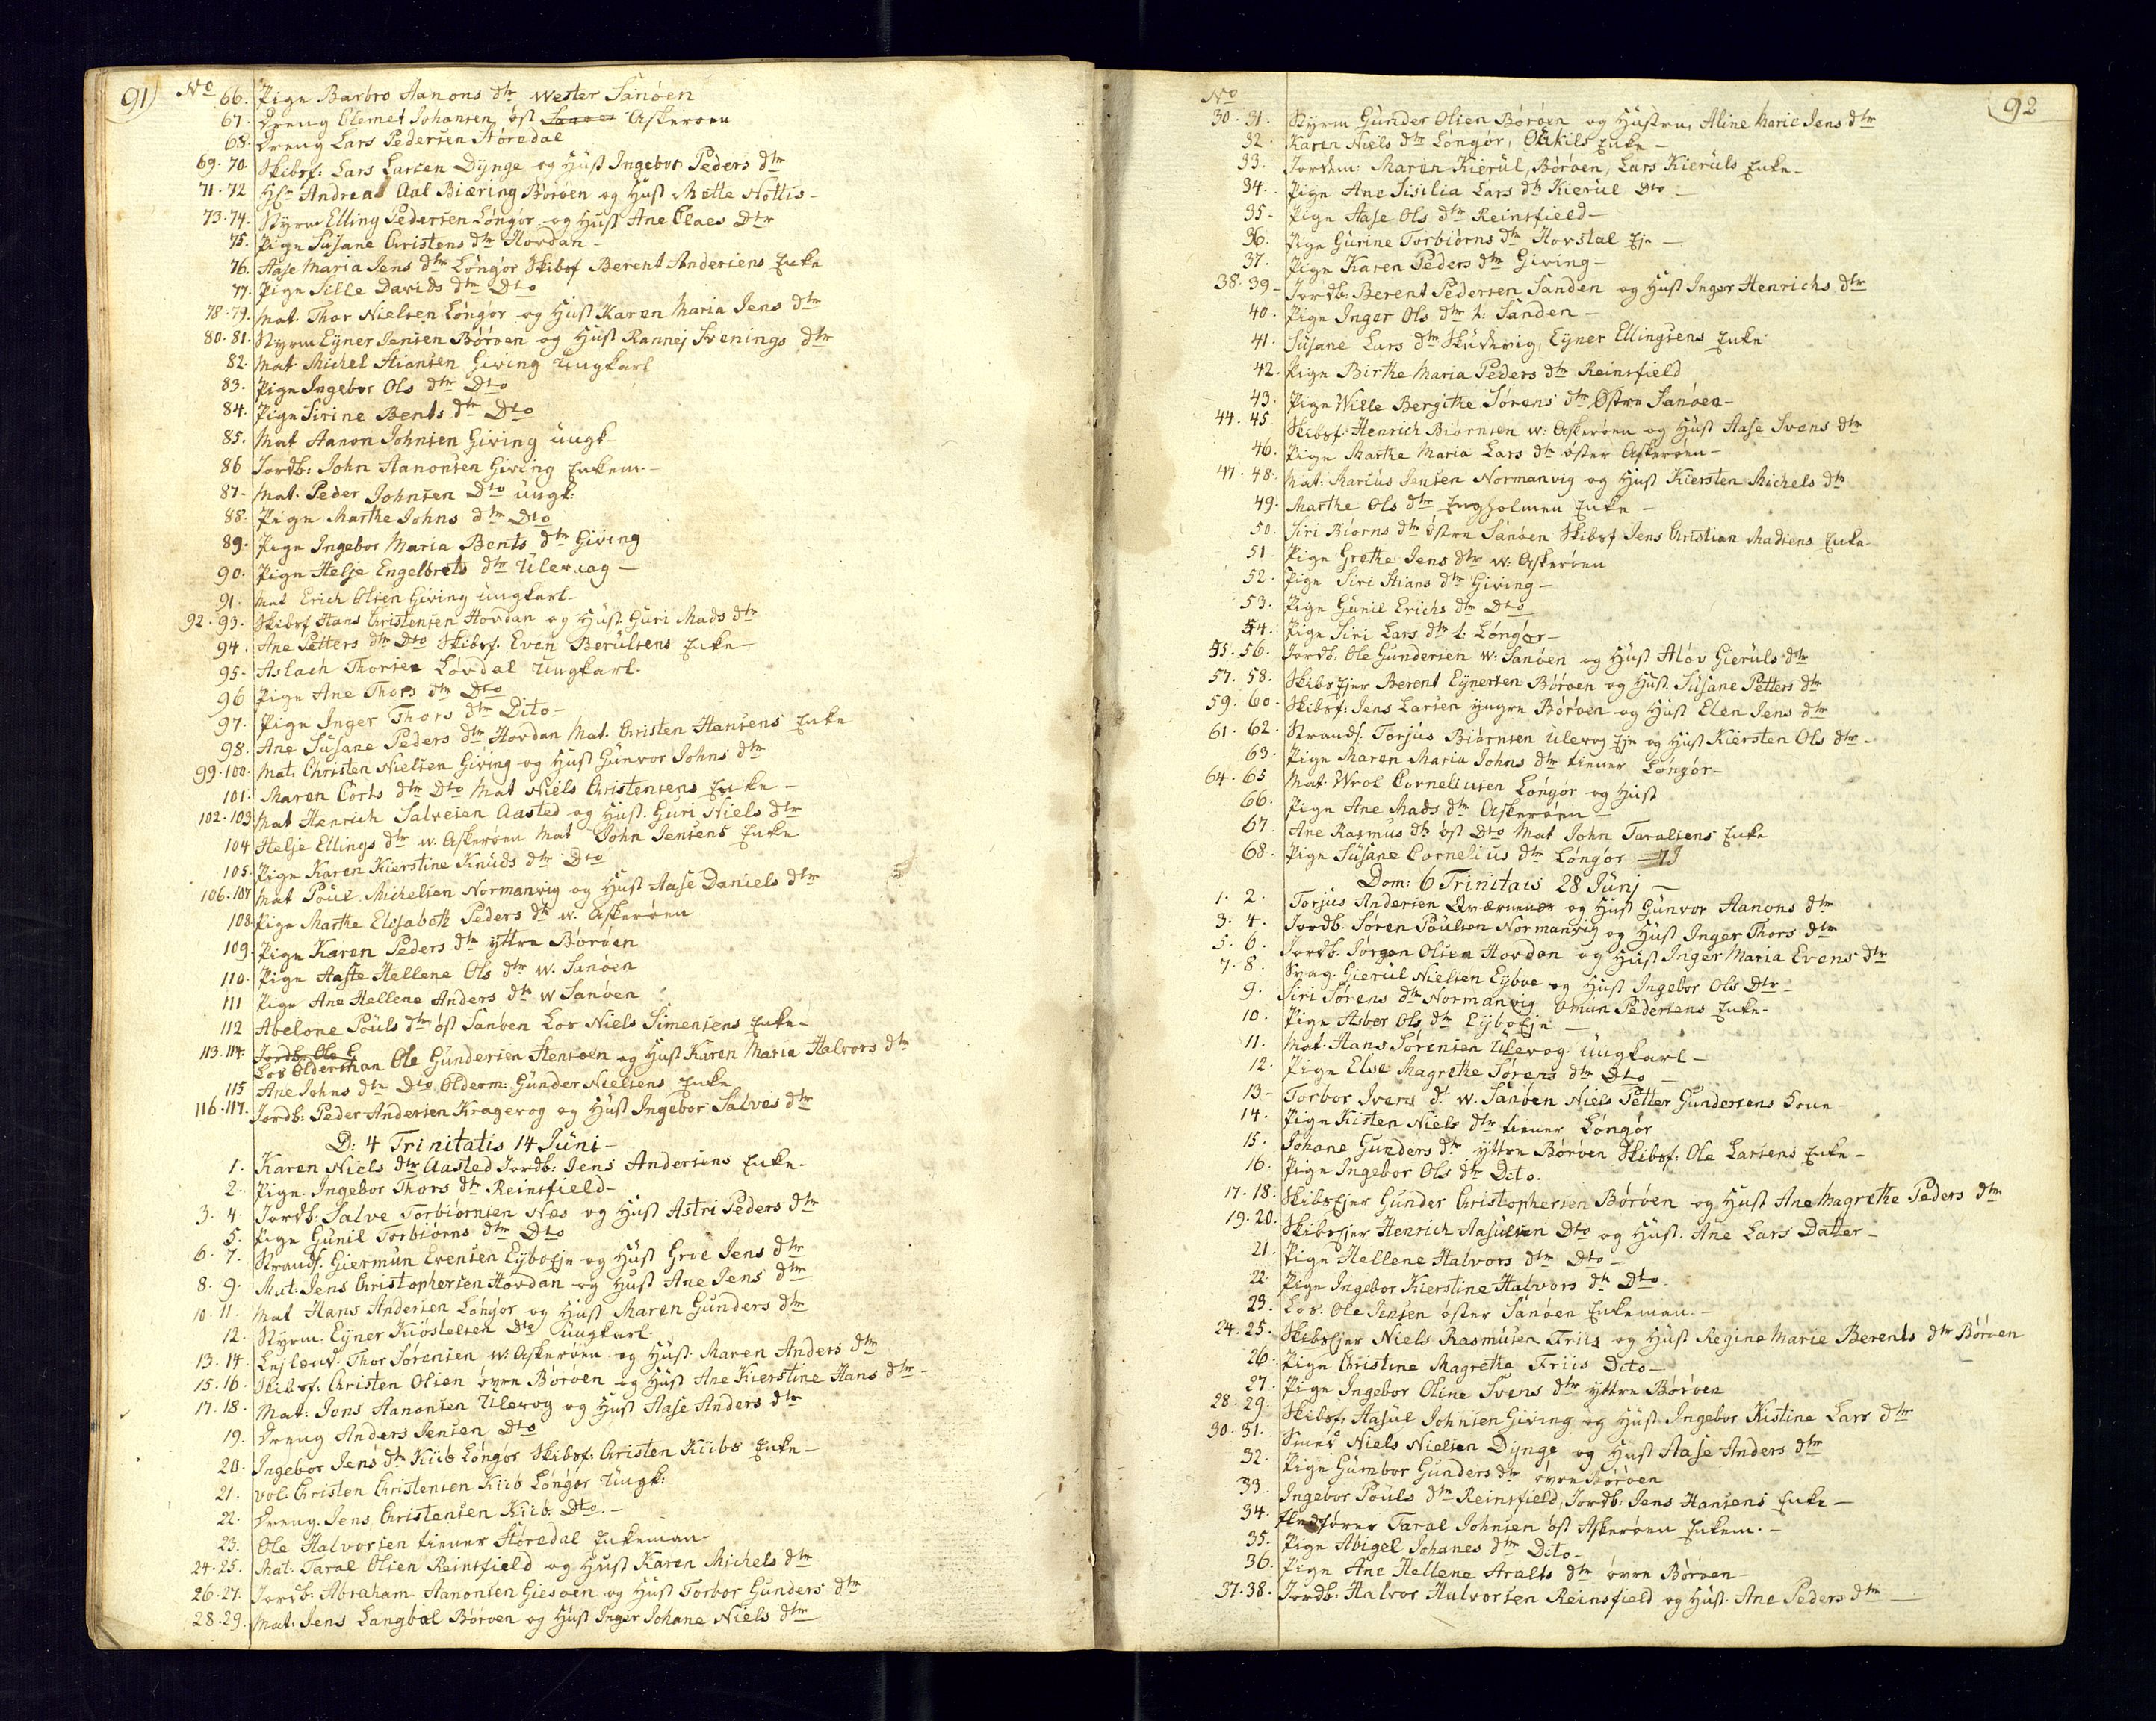 91
No 66. Pige Barbro Aanons dtr Wester Sanöen
67. Dreng Clemet Johansen öst Sanöen Askeröen
68. Dreng Lars Pedersen Höredal
69. 70. Skibsf: Lars Larsen Dynge og Hust Ingebor Peders dtr
71. 72 Hr Andreas Aal Biæring Böröen og Hust Mette Nottis
73. 74. Styrm Elling Pedersen Löngör og Hust Ane Claes Dtr
75. Pige Susane Christens dtr Hovdan
76. Aase Maria Jens dtr Löngör Skibsf Berent Andersens Enke
77. Pige Sille Davids dtr Dto
78. 79. Mat. Thor Nielsen Löngör og Hust Karen Maria Jens dtr
80. 81. Styrm Eyner Jensen Böröen og Hust Rannej Svenings dtr
82. Mat. Michel Stiansen Giving Ungkarl
83. Pige Ingebor Ols dtr Dto
84. Pige Sirine Bents dtr Dto
85. Mat Aanon Johnsen Giving ungk
86 Jordb: John Aanonsen Giving Enkem.
87. Mat. Peder Johnsen Dto ungk:
88. Pige Marthe Johns dtr Dto
89. Pige Ingebor Maria Bents dtr Giving
90. Pige Helje Engelbrets dtr Ulevaag
91. Mat Erich Olsen Giving ungkarl
92. 93. Skibsf Hans Christensen Hovdan og Hust Guri Mads dtr
94. Ane Petters dtr Dto Skibsf. Even Berulsens Enke
95. Aslach Thorsen Lövdal Ungkarl.
96 Pige Ane Thors dtr Dto
97. Pige Inger Thors dtr Dito
98. Ane Susane Peders dtr Hovdan Mat. Christen Hansens Enke
99. 100. Mat. Christen Nielsen Giving og Hust Gunvor Johns dtr
101. Maren Corts dtr Dto Mat Niels Christensens Enke
102. 103 Mat Henrich Salvesen Aasted og Hust. Guri Niels dtr
104 Helje Ellings dtr w. Askeröen Mat John Jensens Enke
105. Pige Karen Kierstine Knuds dtr Dto
106. 107 Mat Poul Michelsen Normanvig og Hust Aase Daniels dtr
108. Pige Marthe Elisabeth Peders dtr w. Askeröen
109. Pige Karen Peders dtr yttre Böröen
110. Pige Aaste Hellene Ols dtr W. Sanöen
111 Pige Ane Hellene Anders dtr W Sanöen
112 Abelone Pouls dtr öst Sanöen Los Niels Simensens Enke
113. 114. Jordb: Ole G
Los Olderman Ole Gundersen Stensöen og Hust Karen Maria Halvors dtr
115 Ane Johns dtr Dto Olderm: Gunder Nielsens Enke
116. 117. Jordb: Peder Andersen Kragevog og Hust Ingebor Salves dtr
D: 4 Trinitatis 14 Juni
1. Karen Niels dtr Aasted Jordb: Jens Andersens Enke
2. Pige. Ingebor Thors dtr Reinsfield
3. 4. Jordb: Salve Torbiörnsen Næs og Hust Astri Peders dtr
5. Pige Gunil Torbiörns dtr Dto
6. 7. Strands. Giermun Evensen Eyboeje og Hust Groe Jens dtr
8. 9. Mat: Jens Christophersen Hovdan og Hust Ane Jens dtr
10. 11. Mat Hans Andersen Löngör og Hust Maren Gunders dtr
12. Styrm. Eyner Kiöstelsen Dto ungkarl.
13. 14. Lejlend. Thor Sörensen W: Askeröen og Hust. Maren Anders dtr
15. 16. Skibsf. Christen Olsen övre Böröen og Hust Ane Kierstine Hans dtr
17. 18. Mat: Jens Aanonsen Ulevog og Hust Aase Anders dtr
19. Dreng Anders Jensen Dto
20. Ingebor Jens dtr Kiib Löngör Skibsf: Christen Kiibs Enke
21. vol. Christen Christensen Kiib Löngör Ungk:
22. Dreng. Jens Christensen Kiib. Dto.
23. Ole Halvorsen tiener Höredal Enkeman
24. 25. Mat: Taral Olsen Reinsfield og Hust Karen Michels dtr
26. 27. Jordb: Abraham Aanonsen Giesöen og Hust Torbor Gunders dtr
28. 29. Mat: Jens Langbal Böröen og Hust Inger Johane Niels dtr
92
No
30. 31. Styrm Gunder Olsen Böröen og Hustru Aline Marie Jens dtr
32. Karen Niels dtr Löngör, Enke
33. Jordem: Maren Kierul, Böröen, Lars Kieruls Enke
34. Pige Ane Sisilia Lars dtr Kierul Dto
35. Pige Aase Ols dtr Reinsfield
36. Pige Gurine Torbiörns dtr Hovstal Eje
37. Pige Karen Peders dtr Giving
38. 39 Jordb. Berent Pedersen Sanden og Hust Inger Henrichs dtr
40. Pige Inger Ols dtr t: Sanden
41. Susane Lars dtr Skudevig, Eyner Ellingsens Enke
42. Pige Birthe Maria Peders dtr Reinsfield
43. Pige Wille Bergithe Sörens dtr Östre Sanöen
44. 45 Skibsf. Henrich Biörnsen w: Askeröen og Hust Aase Svens dtr
46. Pige Marthe Maria Lars dtr öster Askeröen
47. 48. Mat: Marius Jensen Normanvig og Hust Kiersten Michels dtr
49. Marthe Ols dtr Engholmen Enke
50. Siri Biörns dtr östre Sanöen Skibsf Jens Christian Madsens Enke
51. Pige Grethe Jens dtr w: Askeröen
52. Pige Siri Stians dtr Giving
53. Pige Gunil Erichs dtr Dto
54. Pige Siri Lars dtr t: Löngör
55. 56. Jordb. Ole Gundersen W: Sanöen og Hust Alöv Gieruls dtr
57. 58. Skibsejer Berent Eynersen Böröen og Hust. Susane Petters dtr
59. 60. Skibsf: Jens Larsen yngre Böröen og Hust Elen Jens dtr
61. 62. Strands. Torjus Biörnsen Ulevog Eje og Hust Kiersten Ols dtr
63. Pige Maren Maria Johns dtr tiener Löngör
64. 65 Mat. Wrol Corneliusen Löngör og Hust
66. Pige Ane Mads dtr Askeröen
67. Ane Rasmus dtr öst Dto Mat John Taralsens Enke
68. Pige Susane Cornelius dtr Löngör
Dom: 6 Trinitais 28 Junj
1. 2. Torjus Andersen Qværnenes og Hust Gunvor Aanons dtr
3. 4. Jordb. Sören Poulsen Normanvig og Hust Inger Thors dtr
5. 6. Jordb. Jörgen Olsen Hovdan og Hust Inger Maria Evens dtr
7. 8. Svag. Gierul Nielsen Eyboe og Hust Ingebor Ols Dtr
9. Siri Sörens dtr Normanvig Omun Pedersens Enke
10. Pige Asbor Ols dtr EyboEje
11. Mat. Hans Sörensen Ulevog ungkarl
12. Pige Else Magrethe Sörens dtr Dto
13. Torbor Ivers dt W. Sanöen Niels Petter Gundersens Kone
14. Pige Kisten Niels dtr tiener Löngör
15. Johane Gunders dtr yttre Böröen Skibsf: Ole Larsens Enke
16. Pige Ingebor Ols dtr Dito.
17. 18. Skibsejer Gunder Christophersen Böröen og Hust Ane Magrethe Peders dtr
19. 20. Skibsejer Henrich Aasulsen Dto og Hust. Ane Lars Dater
21. Pige Hellene Halvors dtr Dto
22. Pige Ingebor Kierstine Halvors dtr Dto
23. Los. Ole Jensen öster Sanöen Enkeman.
24. 25. Skibsejer Niels Rasmusen Friis og Hust Regine Marie Berents dtr Böröen
26. Pige Christine Magrethe Friis Dito
27. Pige Ingebor Oline Svens dtr yttre Böröen
28. 29. Skibsf: Aasul Johnsen Giving og Hust Ingebor Kistine Lars dtr
30. 31. Smed Niels Nielsen Dynge og Hust Aase Anders dtr
32. Pige Gurnbor Gunders dtr övre Böröen
33. Ingebor Pouls dtr Reinsfield, Jordb: Jens Hansens Enke
34. Fledförer Taral Johnsen öst Askeröen Enkem.
35. Pige Abigel Johanes dtr Dito
36. Pige Ane Hellene Aralts dtr övre Böröen
37. 38. Jordb: Halvor Halvorsen Reinsfield og Hust. Ane Peders dtr